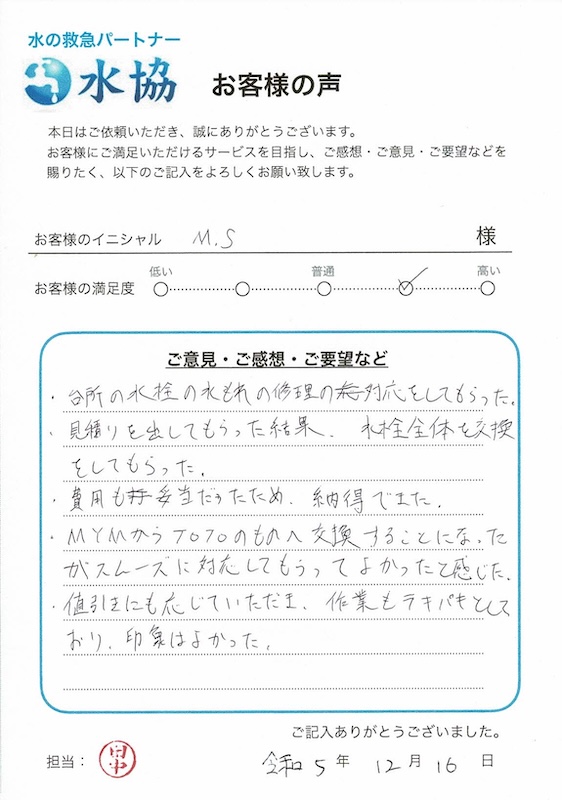 水の救急パートナー
水協 お客様の声
本日はご依頼いただき、誠にありがとうございます。
お客様にご満足いただけるサービスを目指し、ご感想・ご意見・ご要望などを
賜りたく、以下のご記入をよろしくお願い致します。
お客様のイニシャル M.S 様
低い 普通 高い
お客様の満足度
ご意見・ご感想・ご要望など
・台所の水栓の水もれの修理の対応をしてもらった。
・見積りを出してもらった結果、水栓全体を交換
をしてもらった。
・費用も妥当だったため、納得できた。
・MYMからTOTOのものへ交換することになった
がスムーズに対応してもらってよかったと感じた。
・値引きにも応じていただき、作業もテキパキとして
おり、印象はよかった。
ご記入ありがとうございました。
担当： 田中 令和5年12月16日